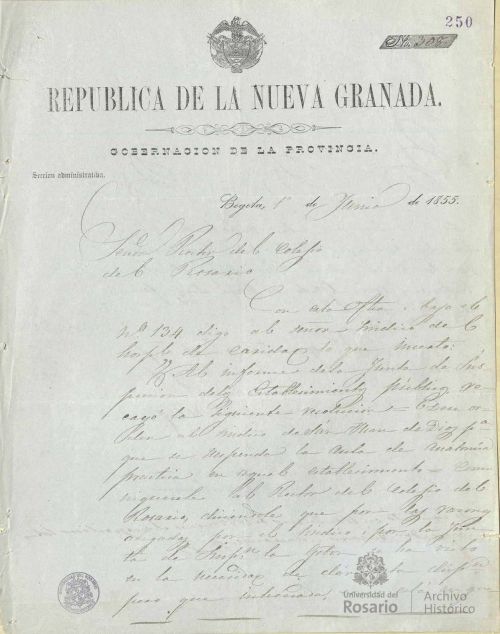 250
No. 305
REPUBLICA DE LA NUEVA GRANADA.
GOBERNACION DE LA PROVINCIA.
Seccion administrativa.
Bogotá, 1º de Junio de 1855.
Señor Rector del Colejio
del Rosario
Con esta fha i bajo el
nº 134 digo al señor Sindico del
hospital de caridad lo que sigue:
"Al informe de la Junta de Ins
peccion de los establecimientos públicos re
cayó la siguiente resolucion =
al Sindico de San Juan de Dios pa
que se suspenda la aula de anatomía
practica en aquel establecimiento =
al Rector del Colejio del
Rosario, diciendole que por las razones
por el Sindico i por la Jun
ta de Insp.n la Gober.n se ha visto
en la necesidad de
pero que
Universidad del
Rosario
Archivo
Histórico